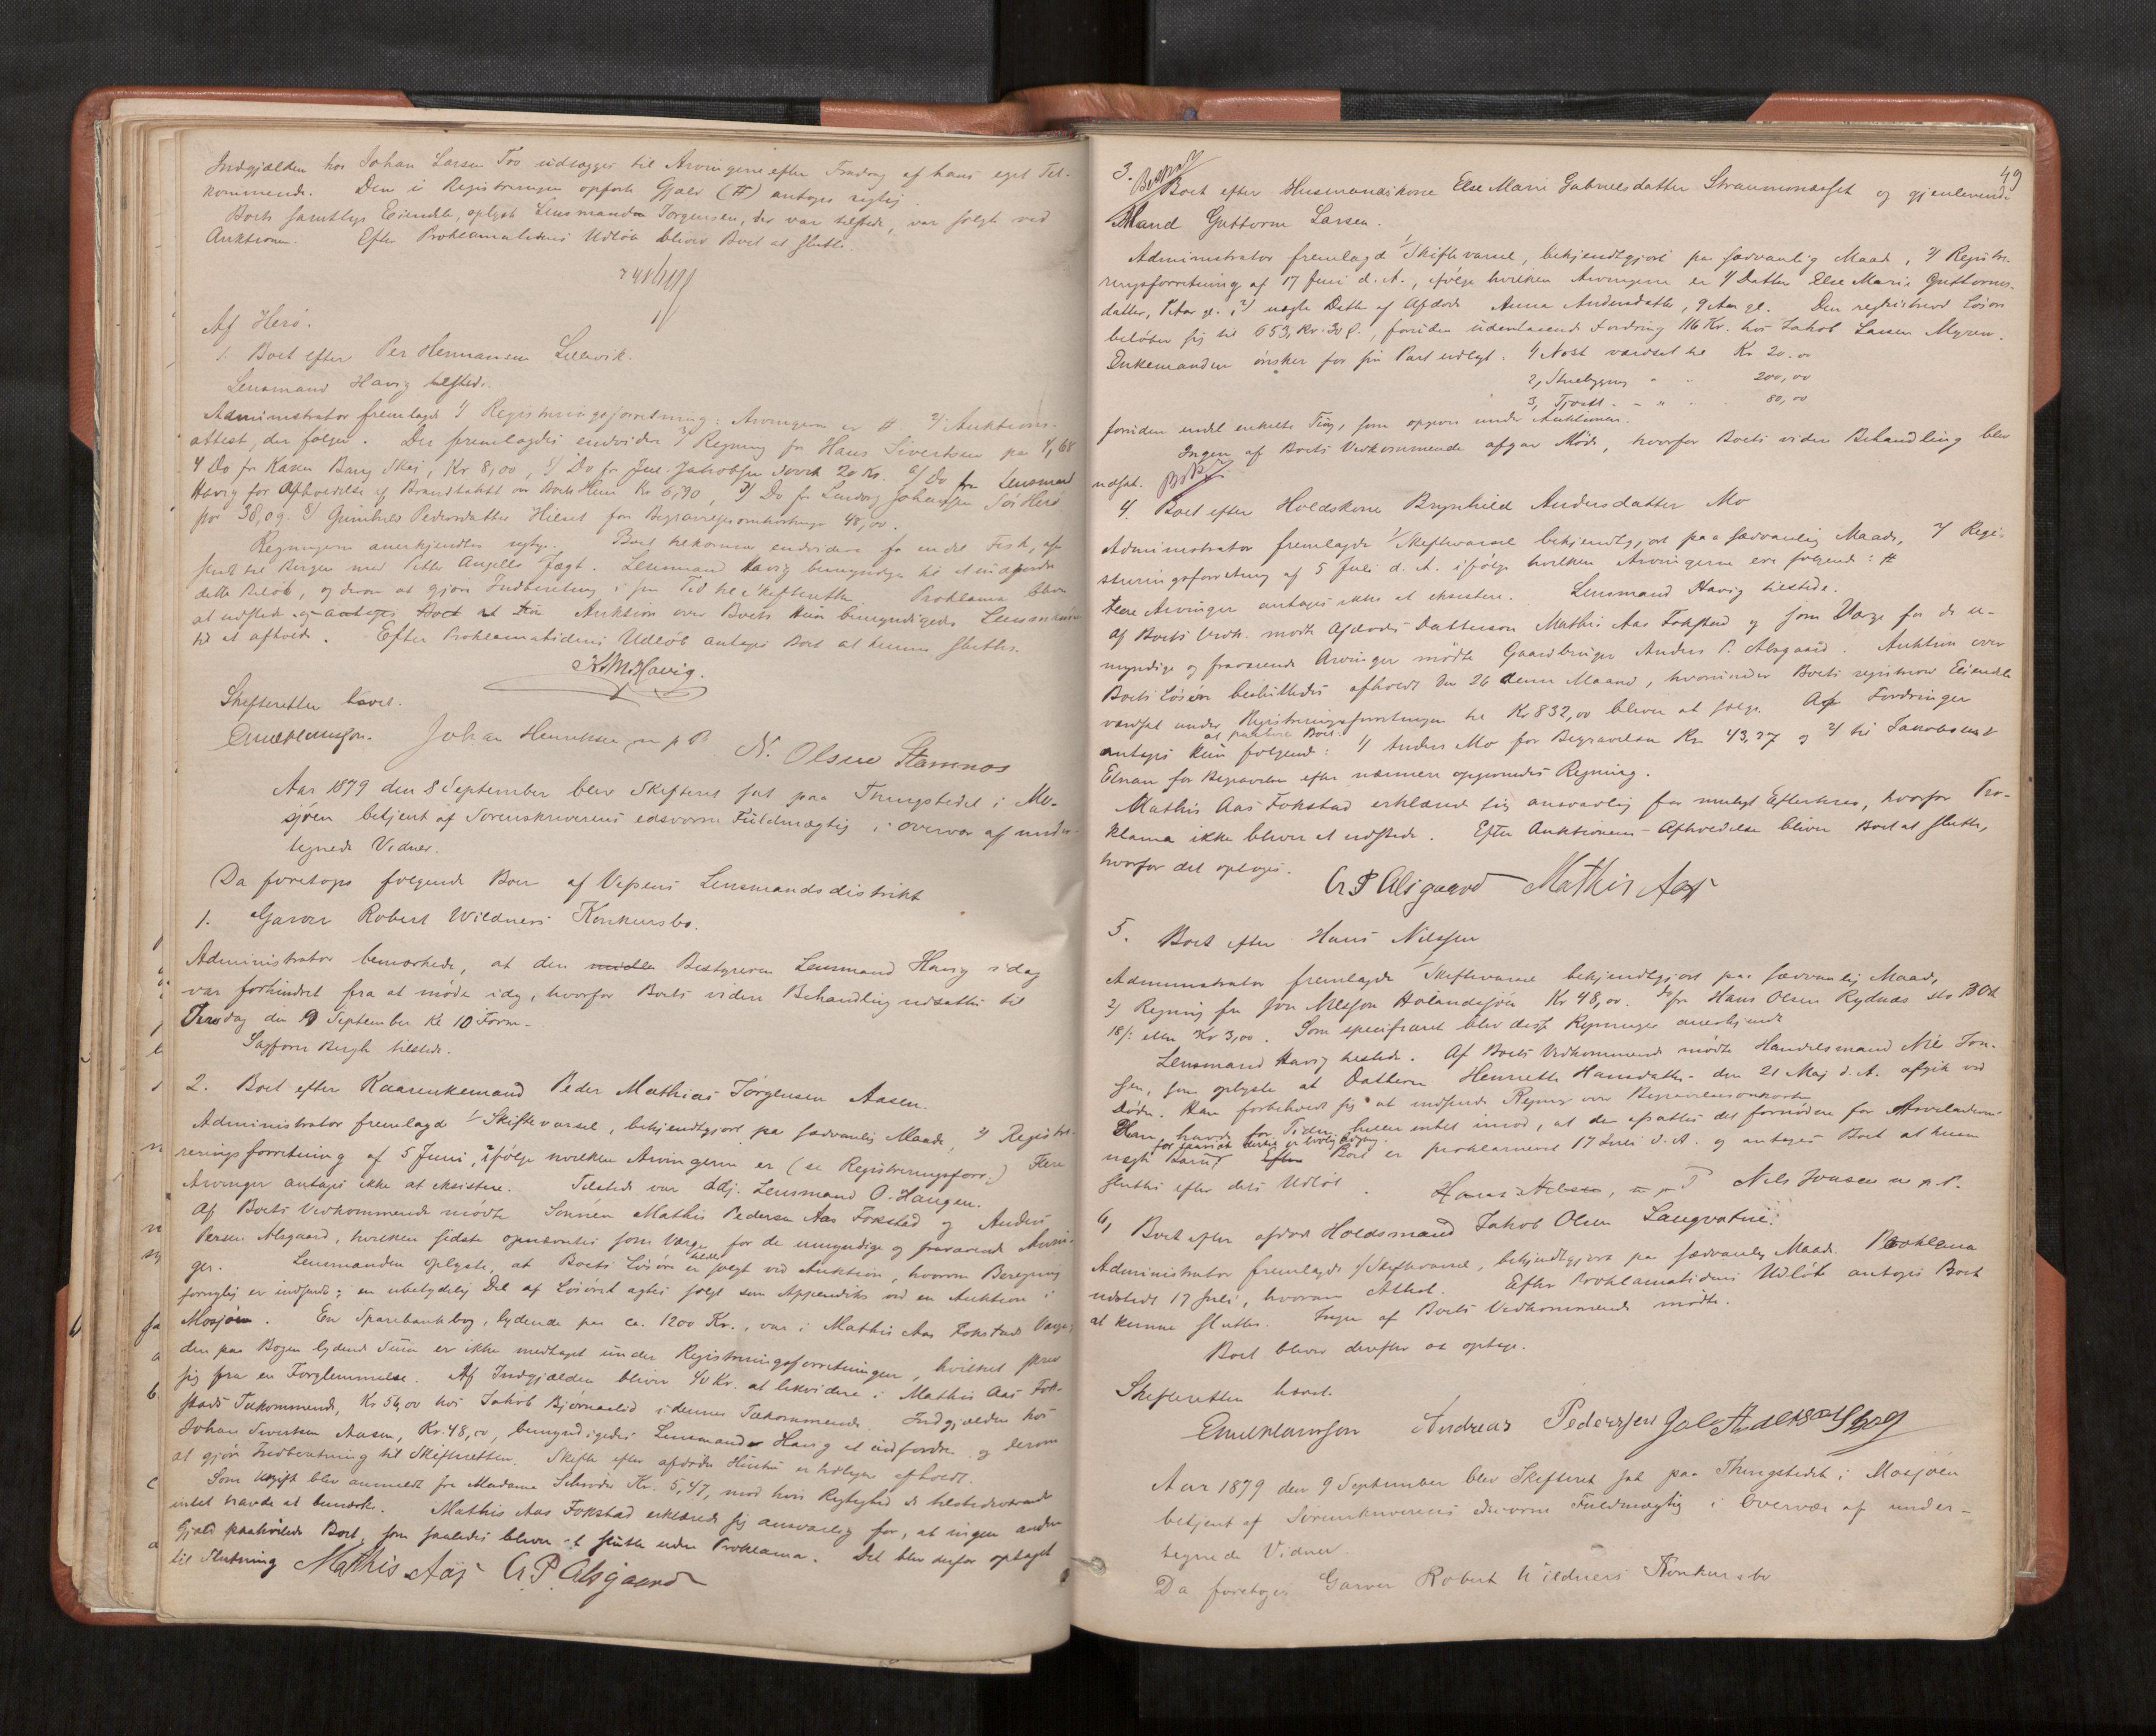 Indgjælden hos Johan Larsen Tro udlægges til Arvingerne efter Fradrag af hans eget Til-
kommende. Den i Registreringen opførte Gjæld (#) antoges rigtig.
Boets samtlige Eiendele, oplyste Lensmanden Jørgensen, der var tilstede, var solgt ved
Auktionen. Efter Proklamatidens Udløb bliver Boet at slutte.
Af Herø.
1. Boet efter Per Hermansen Lillevik.
Lensmand Havig tilstede.
Administrator fremlagde 1/ Registreringsforretning: Arvingerne er # 2/ Auktions-
attest, der følger. Der fremlagdes endvidere 3/ Regning fra Hans Sivertsen paa 4,68
4/ Do fra Karen Barg Skei, Kr 8,00, 5/ Do fra Jac. Jakobsen 20 Kr. 6/ Do fra Lensmand
Havig for Afholdelse af Brandtakst over Boets Huse Kr 6,90, 7/ Do fra Johansen Sør Herø
for 38,09. 8/ Pedersdatter for Begravelsesomkostninger 48,00.
Regningerne anerkjendtes rigtige. Boet tilkommer endvidere for en del Fisk, af-
sendt til Bergen med Petter Angells Jægt. Lensmand Havig bemyndiges til at indfordre
dette Beløb, og derom at gjøre Indberetning i sin Tid til Skifteretten. Proklama bliver
at udstede og antages Boet at Auktion over Boets Huse bemyndigedes Lensmanden
til at afholde. Efter Proklamatidens Udløb antages Boet at kunne sluttes.
Havig.
Skifteretten hævet.
Johan Henriksen m p P. N. Olsen Stamnes
Aar 1879 den 8 September blev Skifteret sat paa Thingstedet i Mo-
sjøen betjent af Sorenskriverens edsvorne Fuldmægtig i Overvær af under-
tegnede Vidner.
Da foretoges følgende Boer af Vefsens Lensmandsdistrikt
1. Garver Robert Wildners Konkursbo.
Administrator bemærkede, at den Bestyreren Lensmand Havig idag
var forhindret fra at møde idag, hvorfor Boets videre Behandling udsattes til
Tirsdag den 9 September Kl 10 Form.
Sagfører Bergh tilstede.
2. Boet efter Kaarenkemand Peder Mathias Jørgensen Aasen.
Administrator fremlagde 1/ Skiftevarsel, bekjendtgjort paa sædvanlig Maade, 2/ Regist-
reringsforretning af 5 Juni, ifølge hvilken Arvingerne er (se Registreringsforr.) Flere
Arvinger antages ikke at eksistere. Tilstede var Adj. Lensmand O. Haugen.
Af Boets Vedkommende mødte Sønnen Mathis Pedersen Aas Fokstad og Anders
Persen Alsgaard, hvilken sidste opnævntes som Værge for de umyndige og fraværende Arvin-
ger. Lensmanden oplyste, at Boets Løsøre er solgt ved Auktion, hvorom Beregning
fornylig er indsendt; en ubetydelig Del af Løsøret agtes solgt som Appendiks ved en Auktion i
Mosjøen. En Sparebankbog, lydende paa ca. 1200 Kr., var i Mathis Aas Fokstads Værge;
den paa Bogen lydende Sum er ikke medtaget under Registreringsforretningen, hvilket skrev
sig fra en Forglemmelse. Af Indgjælden bliver 40 Kr. at likvidere i Mathis Aas Fok-
stads Tilkommende, Kr 56,00 hos Jakob Bjørnaalid i dennes Tilkommende. Indgjælden hos
Johan Sivertsen Aasen, Kr. 48,00, bemyndigedes Lensmand Havig at indfordre og derom
at gjøre Indberetning til Skifteretten. Skifte efter afdødes Hustru er tidligere afholdt.
Som Udgift blev anmeldt fra Madame Schrøder Kr. 5,47, mod hvis Rigtighed de tilstedeværende
intet havde at bemærke. Mathis Aas Fokstad erklærede sig ansvarlig for, at ingen anden
Gjæld paahvilede Boet, som saaledes bliver at slutte uden Proklama. Det blev derfor optaget
til Slutning Mathis Aas A P Alsgaard
49
3. Boet efter Husmandskone Else Marie Gabrielsdatter Straumonaset og gjenlevende
Mand Guttorm Larsen.
Administrator fremlagde 1/ Skiftevarsel, bekjendtgjort paa sædvanlig Maade, 2/ Registre-
ringsforretning af 17 Juni d. A., ifølge hvilken Arvingerne er 1/ Datter Else Marie Guttorms-
datter, Aar gl. 2/ uægte Datter af Afdøde Anna Andersdatter, 9 Aar gl. Den registrerede Løsøre
beløber sig til 653, Kr. 30 Ø., foruden udestaaende Fordring 116 Kr. hos Jakob Larsen Myren.
Enkemanden ønsker for sin Part udlagt. 1/ Nøst værdsat til Kr 20.00
2, Stuebygning " " 200,00
3, " . 80,00
foruden endel enkelte Ting, som opgives under Auktionen.
Ingen af Boets Vedkommende afgav Møde, hvorfor Boets videre Behandling blev
udsat.
4. Boet efter Holdskone Brynhild Andersdatter Mo
Administrator fremlagde 1/ Skiftevarsel bekjendtgjort paa sædvanlig Maade, 2/ Regi-
streringsforretning af 5 Juli d. A. ifølge hvilken Arvingerne ere følgende: #
Flere Arvinger antages ikke at eksistere. Lensmand Havig tilstede.
Af Boets Vedk. mødte Afdødes Dattersøn Mathis Aas Fokstad og som Værge for de u-
myndige og fraværende Arvinger mødte Gaardbruger Anders P. Alsgaard. Auktion over
Boets Løsøre besluttedes afholdt den 26 denne Maaned, hvorunder Boets registrerede Eiendele
værdsat under Registreringsforretningen til Kr 832,00 bliver at sælge. Af Fordringer
antages kun følgende at paahvile Boet: 1/ Anders Mo for Begravelse Kr 43,27 og 2/ til
for Begravelse efter nærmere opgivendes Regning.
Mathis Aas Fokstad erklærede sig ansvarlig for muligt Efterkrav, hvorfor Pro-
klama ikke bliver at udstede. Efter Auktionens Afholdelse bliver Boet at slutte,
hvorfor det optoges.
A P Alsgaard Mathis Aas
5. Boet efter Hans Nilssen
Administrator fremlagde 1/ Skiftevarsel bekjendtgjort paa sædvanlig Maade,
2/ Regning fra Jon Nilsson Holandsjøen Kr 48,00. Do fra Hans Olsen Rydnæs
18/: eller Kr 3,00. Som specificeret blev disse Regninger anerkjendt
Lensmand Havig tilstede. Af Boets Vedkommende mødte Handelsmand Nils Jon-
sen, som oplyste at Datteren Henriette Hansdatter den 21 Maj d. A. afgik ved
Døden. Han forbeholdt sig at indsende Regning over Begravelsesomkostn.
Han havde for Tiden heller intet imod, at der afsattes det fornødne for Arveladerens
Boet er proklameret 17 Juli d. A. og antages Boet at kunne
sluttes efter dets Udløb. Hans Nilsen, m p P Nils Jonsen m p P.
6, Boet efter afdøde Holdsmand Jakob Olsen Langvatnet.
Administrator fremlagde 1/ Skiftevarsel, bekjendtgjort paa sædvanlig Maade. Proklama
udstedt 17 Juli, hvorom Attest. Efter Proklamatidens Udløb antages Boet
at kunne sluttes. Ingen af Boets Vedkommende mødte.
Boet bliver derefter at optage.
Skifteretten hævet.
Andreas Pederssen
Aar 1879 den 9 September blev Skifteret sat paa Thingstedet i Mosjøen
betjent af Sorenskriverens edsvorne Fuldmægtig i Overvær af under-
tegnede Vidner.
Da foretoges Garver Robert Wildners Konkursbo